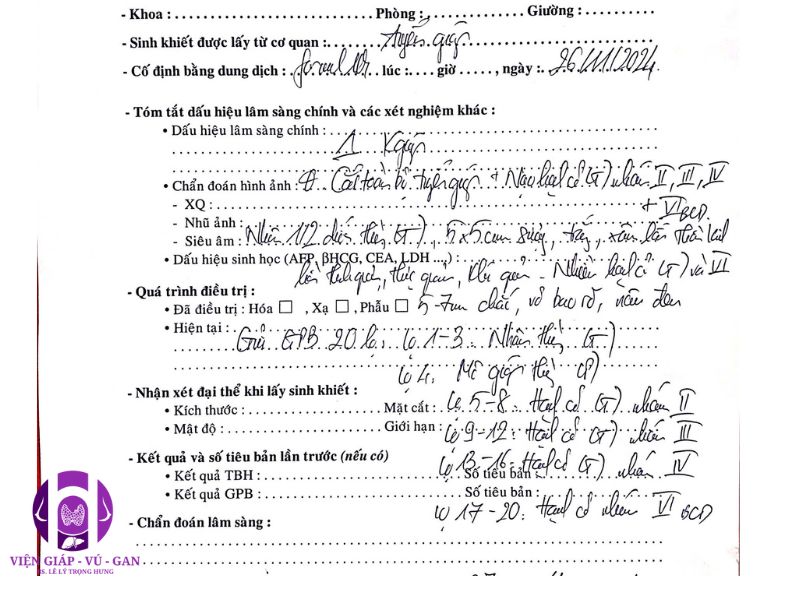 - Khoa : Phòng : Giường :
- Sinh khiết được lấy từ cơ quan : tuyến giáp
- Cố định bằng dung dịch : formol 10% lúc : giờ , ngày : 26/11/2024
- Tóm tắt dấu hiệu lâm sàng chính và các xét nghiệm khác :
• Dấu hiệu lâm sàng chính :
K giáp
• Chẩn đoán hình ảnh : Cắt toàn bộ tuyến giáp + Nạo hạch cổ (T) nhóm II, III, IV
- XQ : + VI BCD
- Nhũ ảnh :
- Siêu âm : Nhân 1/2 dưới thùy (T), 5x5cm cứng, trắng, xâm lấn
• Dấu hiệu sinh học (AFP, βHCG, CEA, LDH ...,) :
thực quản, khí quản - Nhiều hạch cổ (T) và VI
- Quá trình điều trị :
• Đã điều trị : Hóa □ , Xạ □ , Phẫu □ 5-7mm chắc, vỏ bao rõ, màu đen
• Hiện tại :
Gửi GPB 20 lọ. Lọ 1-3: Nhân thùy (T)
Lọ 4. Mô giáp thùy (P)
- Nhận xét đại thể khi lấy sinh khiết :
• Kích thước : Mặt cắt : Lọ 5-8: Hạch cổ (T) nhóm II
• Mật độ : Giới hạn : Lọ 9-12: Hạch cổ (T) nhóm III
- Kết quả và số tiêu bản lần trước (nếu có)
Lọ 13-16: Hạch cổ (T) nhóm IV
• Kết quả TBH : Số tiêu bản :
• Kết quả GPB : Số tiêu bản :
Lọ 17-20: Hạch cổ nhóm VI BCD
- Chẩn đoán lâm sàng :
VIỆN GIÁP - VÚ - GAN
BS. LÊ LÝ TRỌNG HƯNG